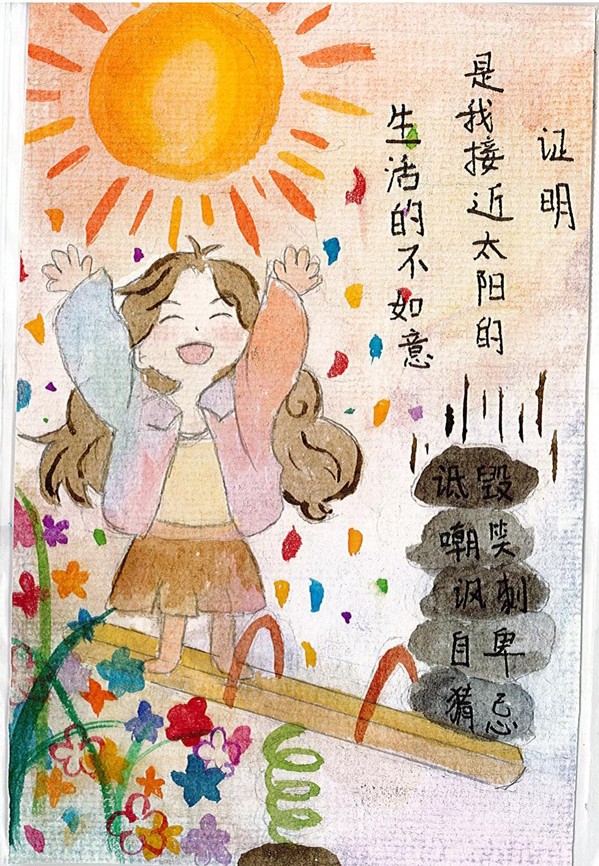 生活的不如意
是我接近太阳的
证明
诋毁
嘲笑
讽刺
自卑
猜忌